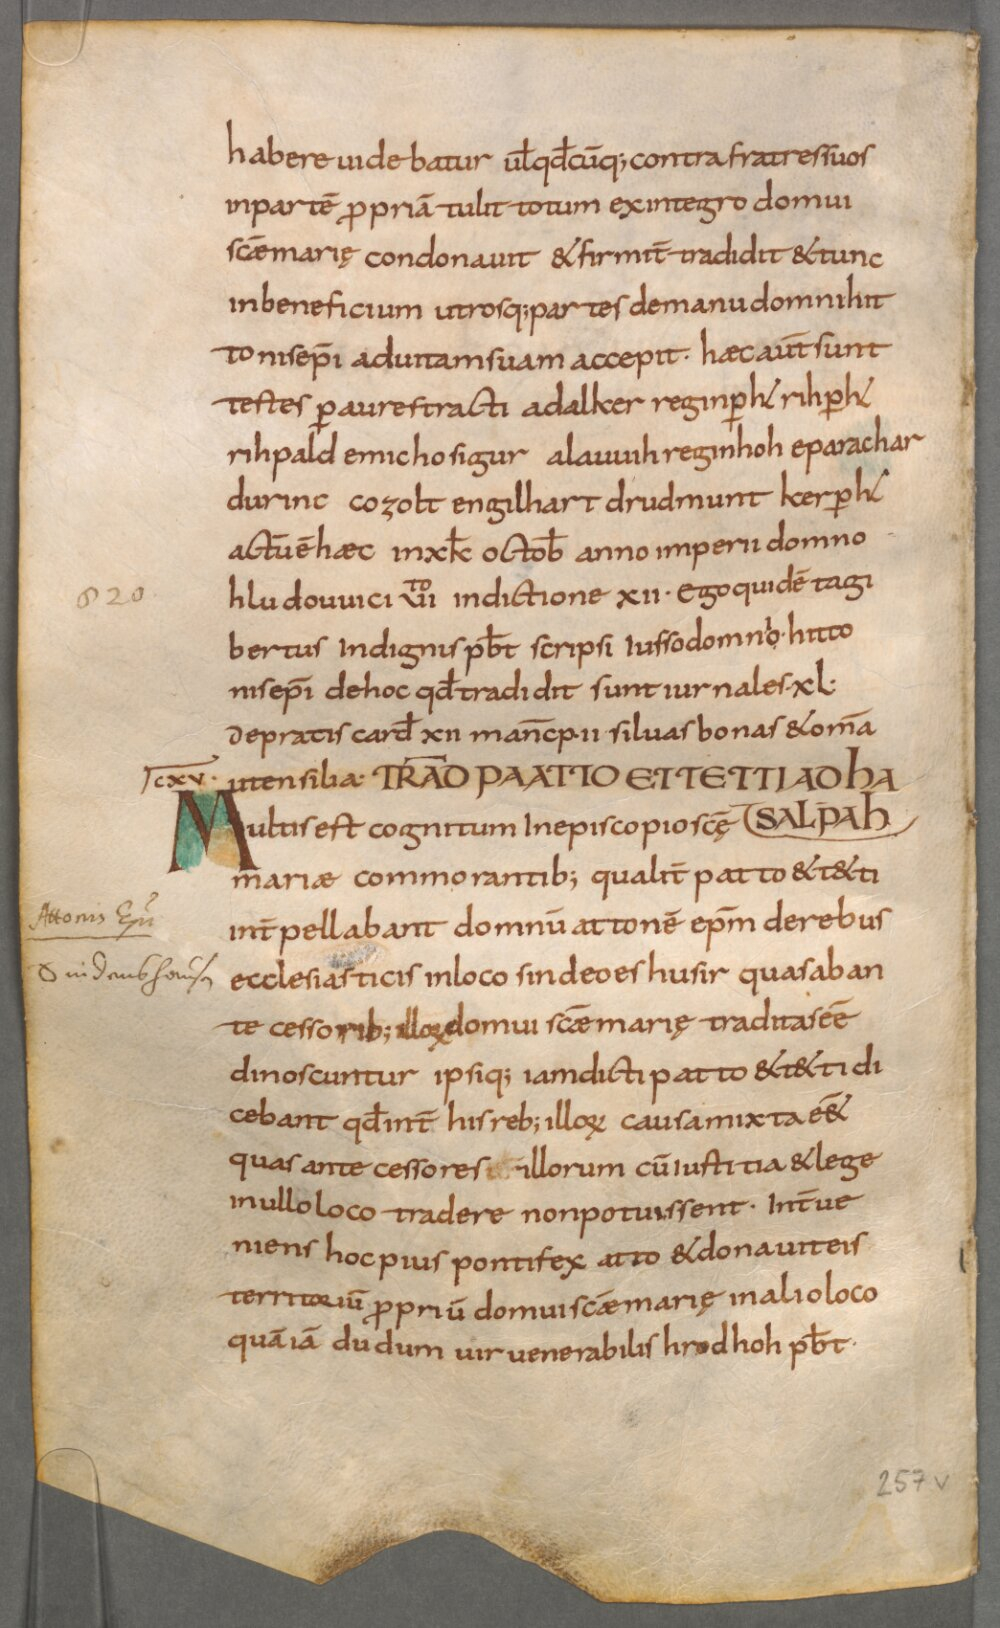 habere uidebatur ul̄ qd̄cūq; contra fratres suos
in partē ꝓpriā tulit totum ex integro domui
scǣ marię condonauit & firmit̄ tradidit & tunc
in beneficium utrosq; partes de manu domni hit
tonis ep̄i ad uitam suam accepit · hæc aut̄ sunt
testes ꝑ aures tracti adalker reginꝑht rihꝑht
rihpald emicho sigur alauuih reginhoh eparachar
durinc cozolt engilhart drudmunt kerꝑht
actū ē hæc in xk̄ octob̄ anno imperii domno
hludouuici vii to indictione xii · Ego quidē tagi
bertus Indignis pb̄t scripsi Iusso domno · hitto
nis ep̄i de hoc qd̄ tradidit sunt iurnales · xl ·
de pratis card̄ xii manc̄p · ii siluas bonas & om̄a
cxv · utensilia · TRAD̄ PAATTO ET TETTI AD HA
SALPAH
Multis est cognitum In episcopio scę̄
mariæ commorantib; qualit̄ patto & t&ti
int̄pellabant domnū attonē ep̄m de rebus
ecclesiasticis in loco sindeoeshusir quas ab an
tecessorib; illoꝝ domui scǣ marię traditas eē
dinoscuntur ipsiq; iamdicti patto & t&ti di
cebant qd̄ int̄ his reb; illoꝝ causa mixta eē &
quas antecessores illorum cū iustitia & lege
in ullo loco tradere non potuissent · Int̄ue
niens hoc pius pontifex atto & donauit eis
territoriū ꝓpriū domui scǣ marię in alio loco
quā iā dudum uir uenerabilis hrodhoh pb̄t ·
820
Attonis
257v